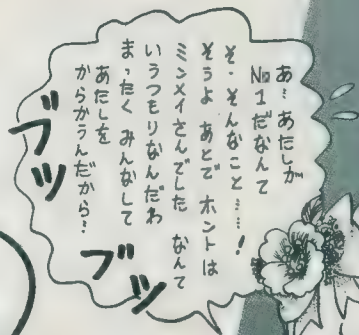 あ…あたしが
No.1だなんて
そ・そんなこと……!
そうよ あとで ホントは
ミンメイさんでした なんて
いうつもりなんだわ
まったく みんなして
あたしを
からかうんだから…
ブツ
ブツ